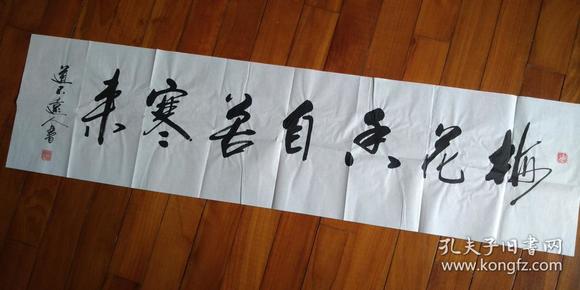 梅花香自苦寒来
道不遠人書
孔夫子旧书网
www.kongfz.com